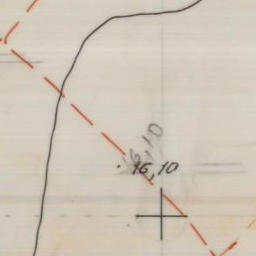 16,10
16,10